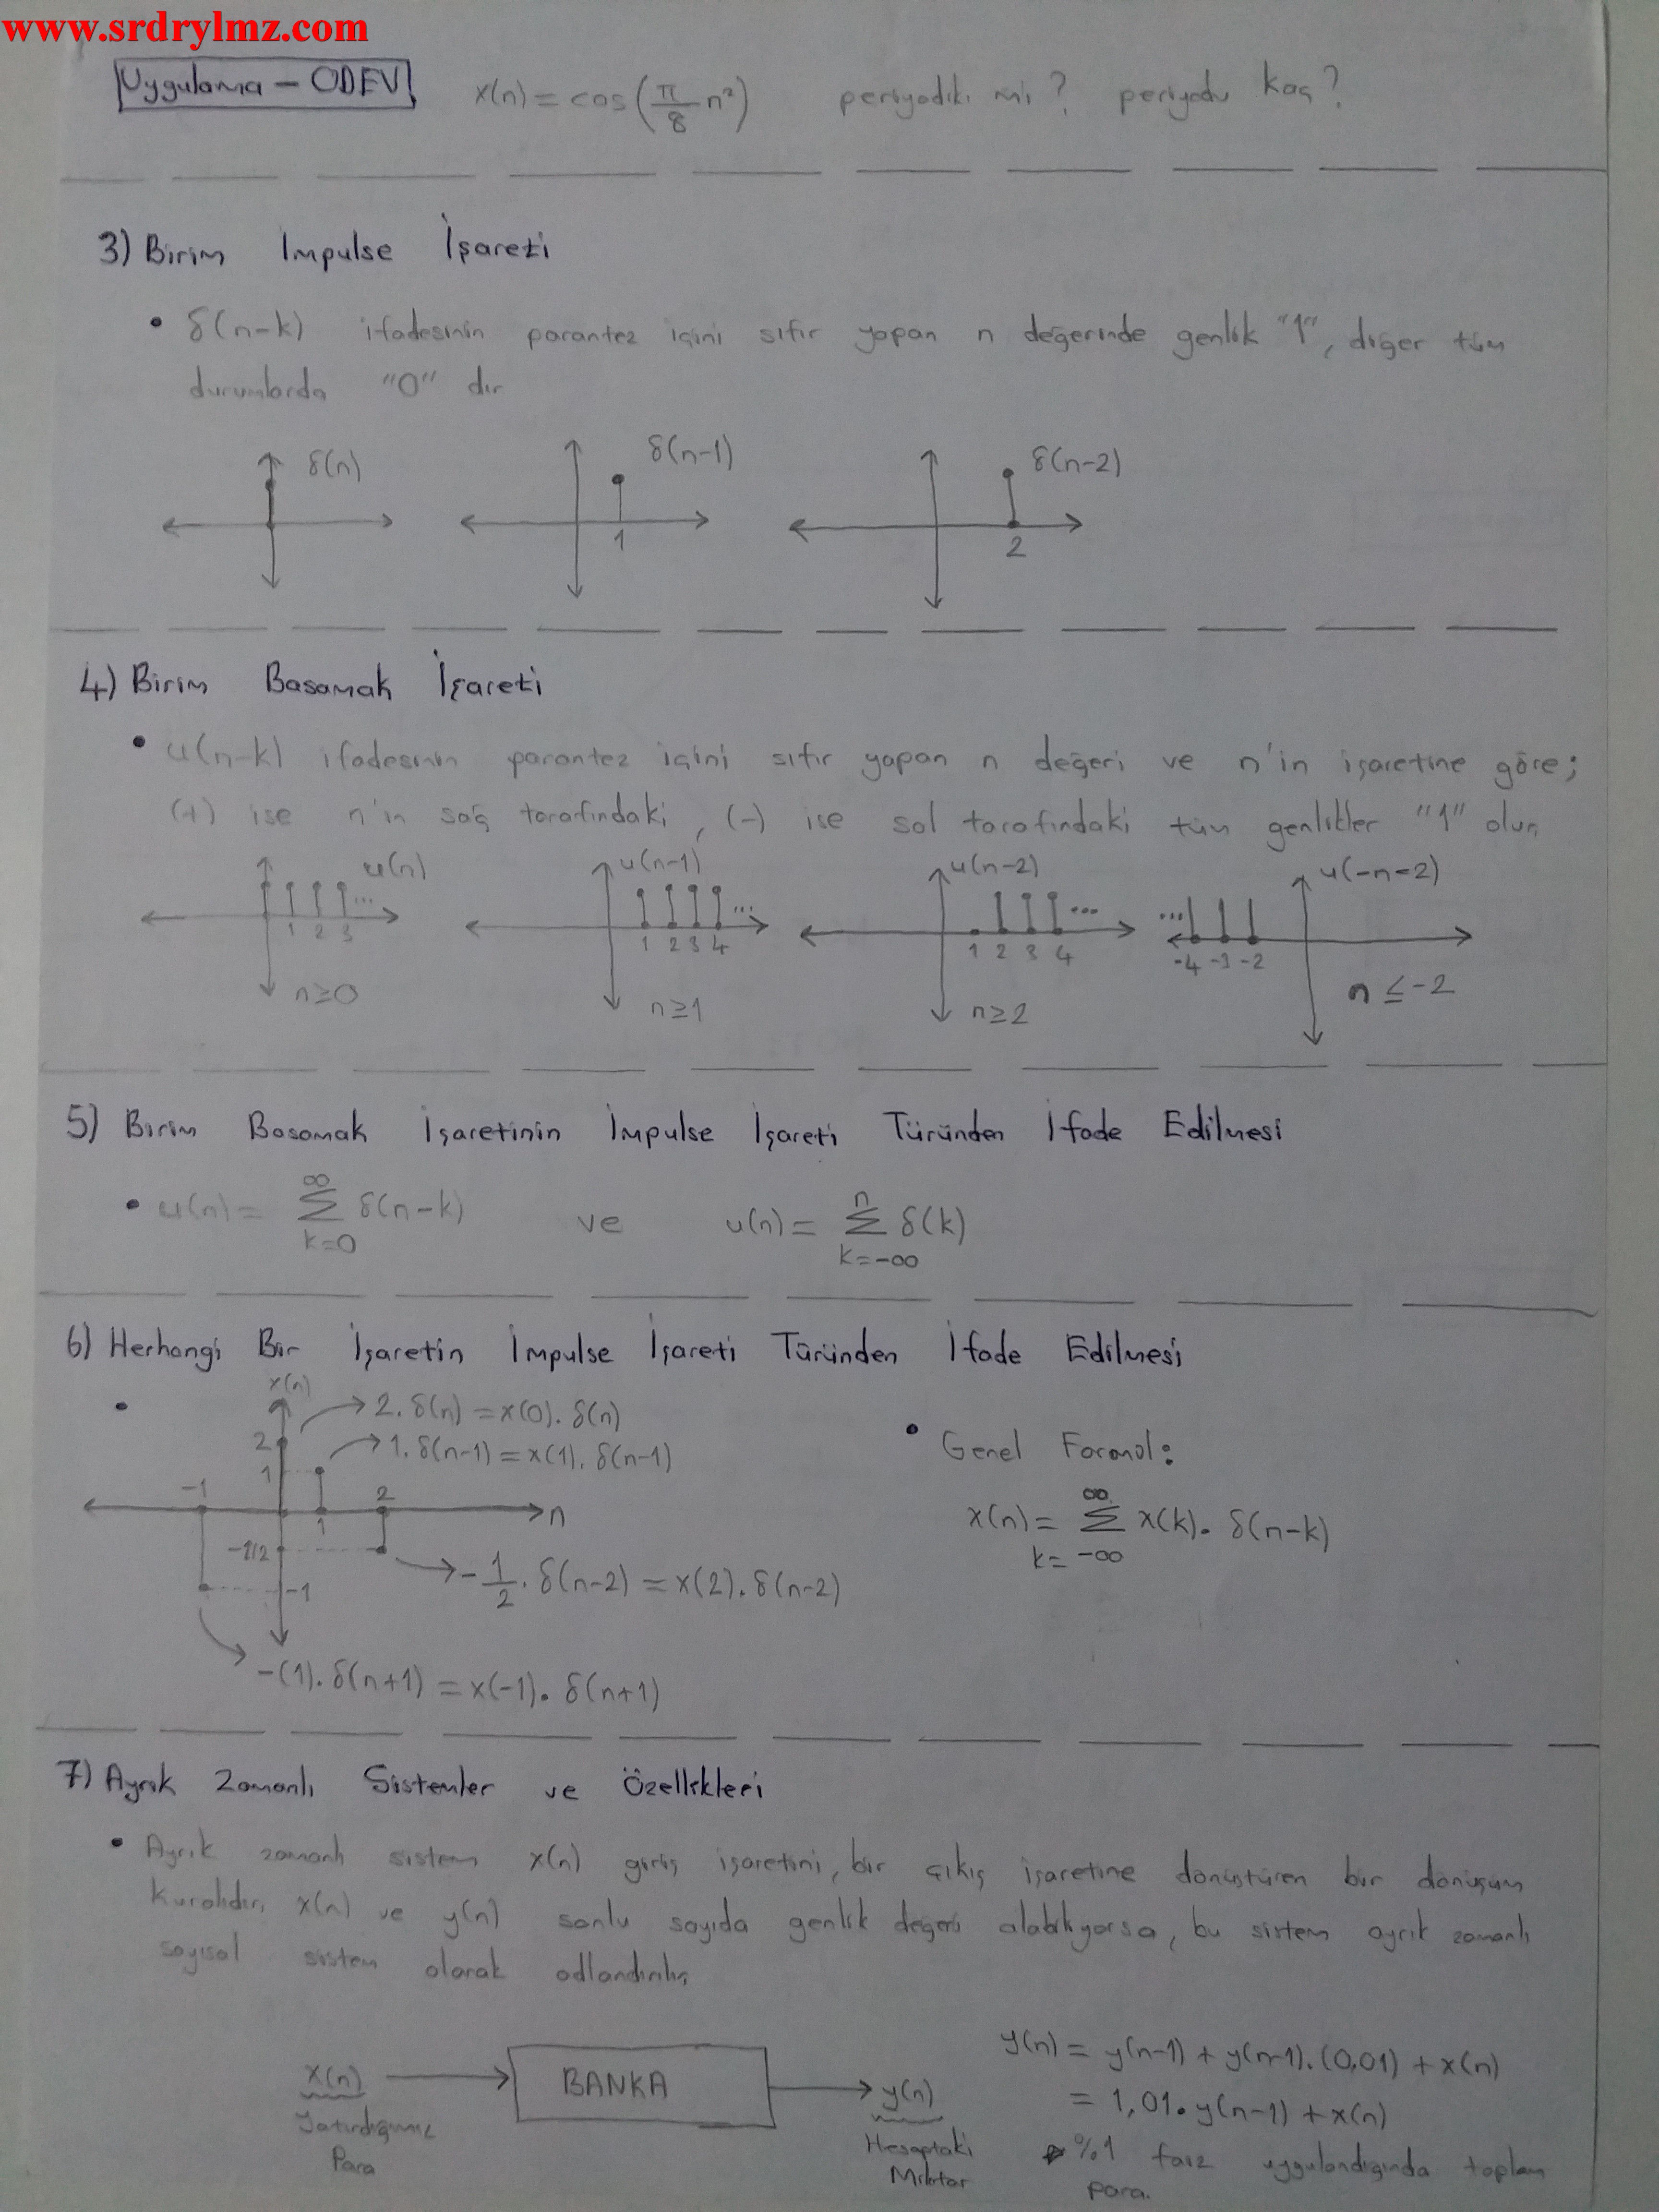 www.srdrylmz.com
Uygulama - ÖDEV x(n) = cos(π/8 n²) periyodik mi? periyodu kaç?
3) Birim Impulse İşareti
• δ(n-k) ifadesinin parantez içini sıfır yapan n değerinde genlik "1", diğer tüm
durumlarda "0" dır
δ(n) δ(n-1) δ(n-2)
1 2
4) Birim Basamak İşareti
• u(n-k) ifadesinin parantez içini sıfır yapan n değeri ve n'in işaretine göre;
(+) ise n'in sağ tarafındaki, (-) ise sol tarafındaki tüm genlikler "1" olur.
u(n) u(n-1) u(n-2) u(-n-2)
... ... ... ...
1 2 3 1 2 3 4 1 2 3 4 -4 -3 -2
n≥0 n≥1 n≥2 n ≤ -2
5) Birim Basamak İşaretinin İmpulse İşareti Türünden İfade Edilmesi
• u(n) = ∞ Σ k=0 δ(n-k) ve u(n) = n Σ k=-∞ δ(k)
6) Herhangi Bir İşaretin İmpulse İşareti Türünden İfade Edilmesi
x(n)
• 2.δ(n) = x(0).δ(n)
2 1.δ(n-1) = x(1).δ(n-1)
1
-1 2
1 n
-1/2
-1/2.δ(n-2) = x(2).δ(n-2)
-1
-(1).δ(n+1) = x(-1).δ(n+1)
• Genel Formül:
x(n) = ∞ Σ k=-∞ x(k).δ(n-k)
7) Ayrık Zamanlı Sistemler ve Özellikleri
• Ayrık zamanlı sistem x(n) giriş işaretini, bir çıkış işaretine dönüştüren bir dönüşüm
kuralıdır. x(n) ve y(n) sonlu sayıda genlik değeri alabiliyorsa, bu sistem ayrık zamanlı
sayısal sistem olarak adlandırılır.
x(n) BANKA y(n)
Yatırdığımız
Para
Hesaptaki
Miktar
y(n) = y(n-1) + y(n-1).(0,01) + x(n)
= 1,01.y(n-1) + x(n)
%1 faiz uygulandığında toplam
para.